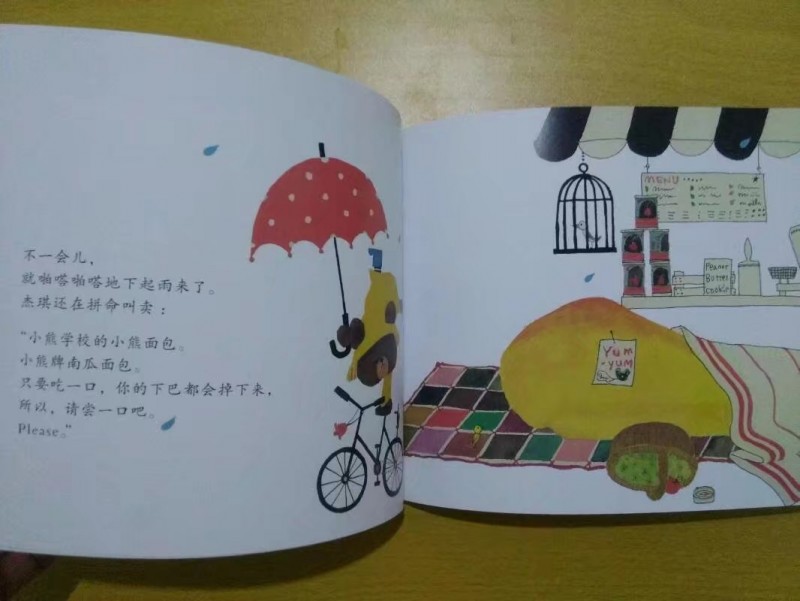 不一会儿，
就啪嗒啪嗒地下起雨来了。
杰琪还在拼命叫卖：
“小熊学校的小熊面包。
小熊牌南瓜面包。
只要吃一口，你的下巴都会掉下来，
所以，请尝一口吧。
Please。”
MENU
Peanut
Butter
Cookie
YUM
-YUM